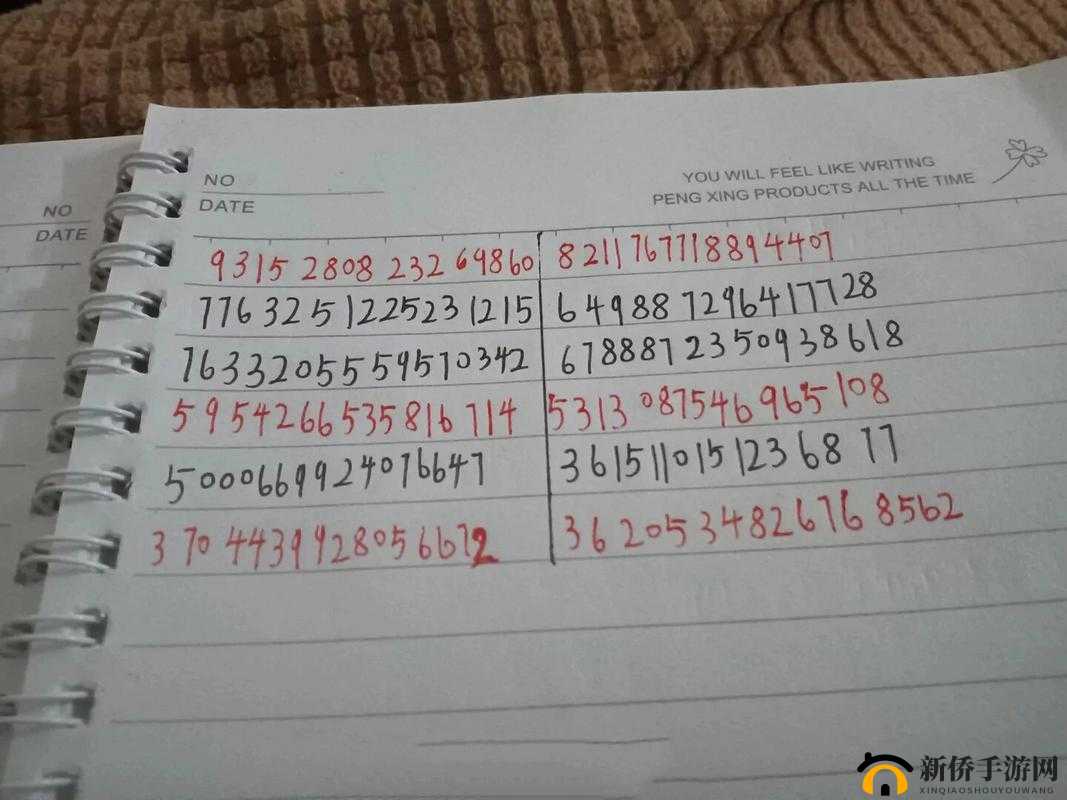 NO
DATE
NO
DATE
YOU WILL FEEL LIKE WRITING
PENG XING PRODUCTS ALL THE TIME
93152808 232 69860 8211767718894407
7763325122523 1215 6498872964177 28
7633205559570342 6788872350938618
5954266535816714 5313087546965108
5000669924076647 3615110151236877
3704439928056672 3620534826768562
新侨手游网
XINQIAOSHOUYOUWANG